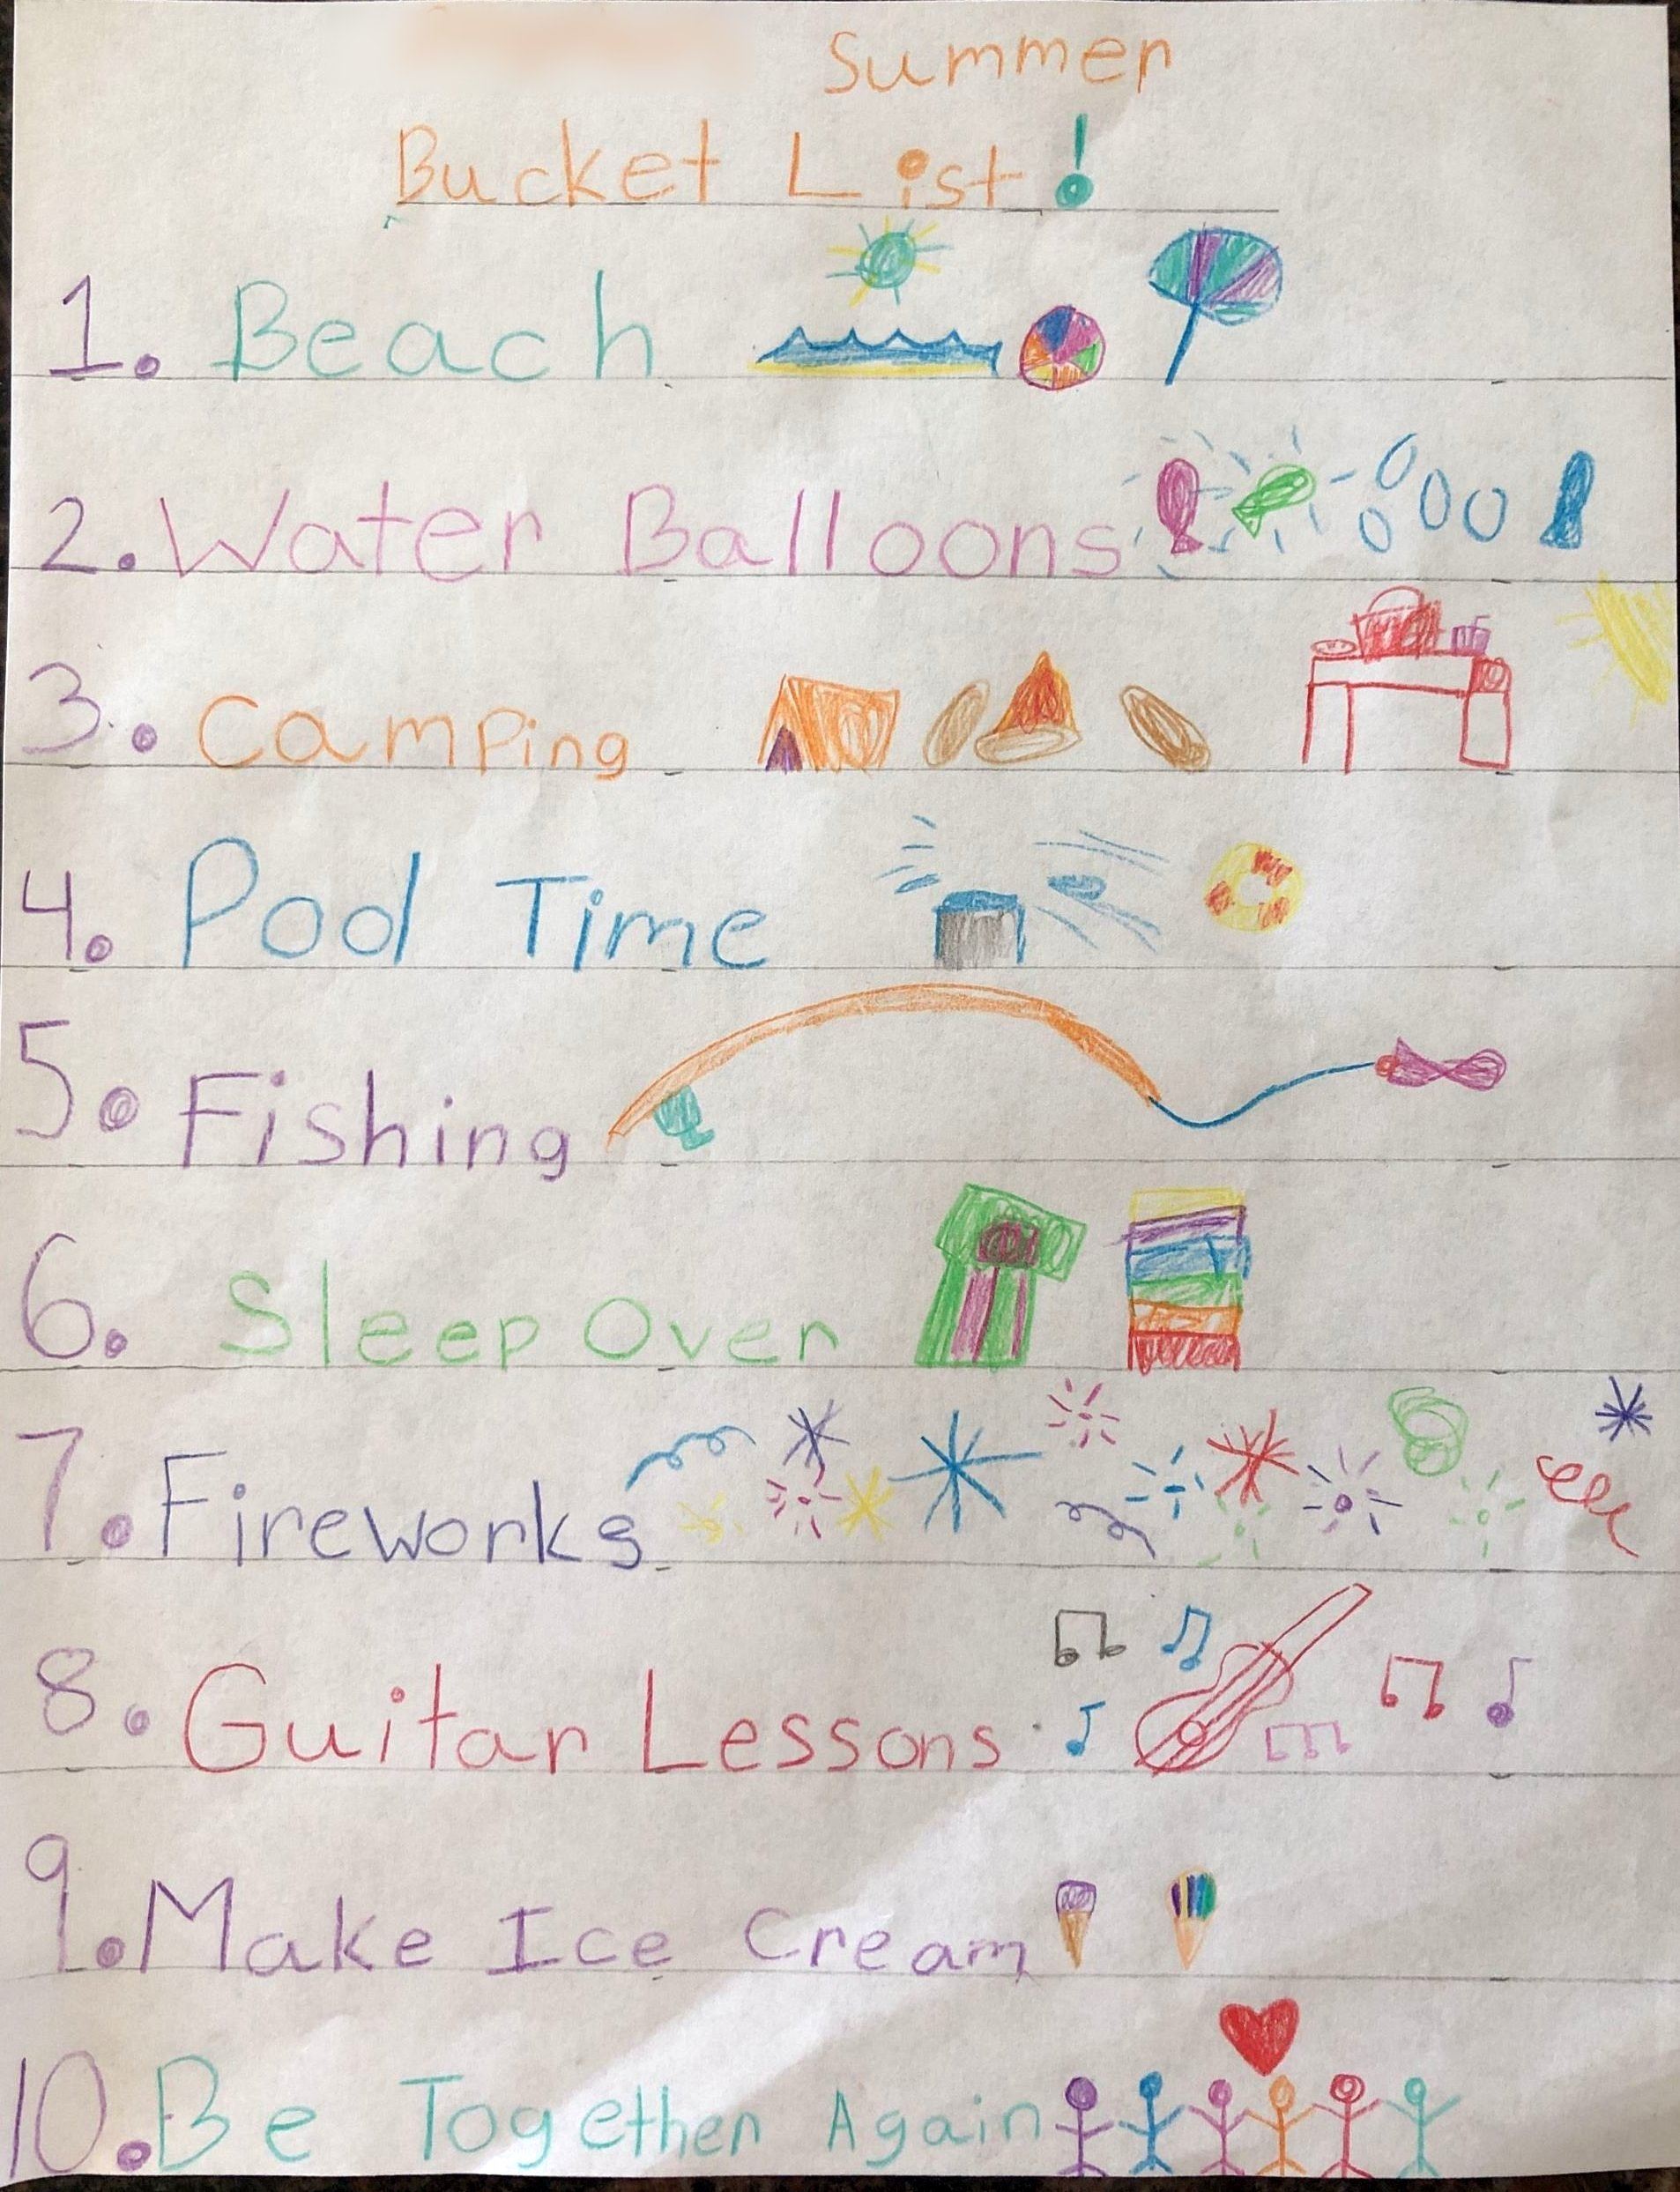 Summer
Bucket List!
1. Beach
2. Water Balloons
3. Camping
4. Pool Time
5. Fishing
6. Sleep Over
7. Fireworks
8. Guitar Lessons
9. Make Ice Cream
10. Be Together Again